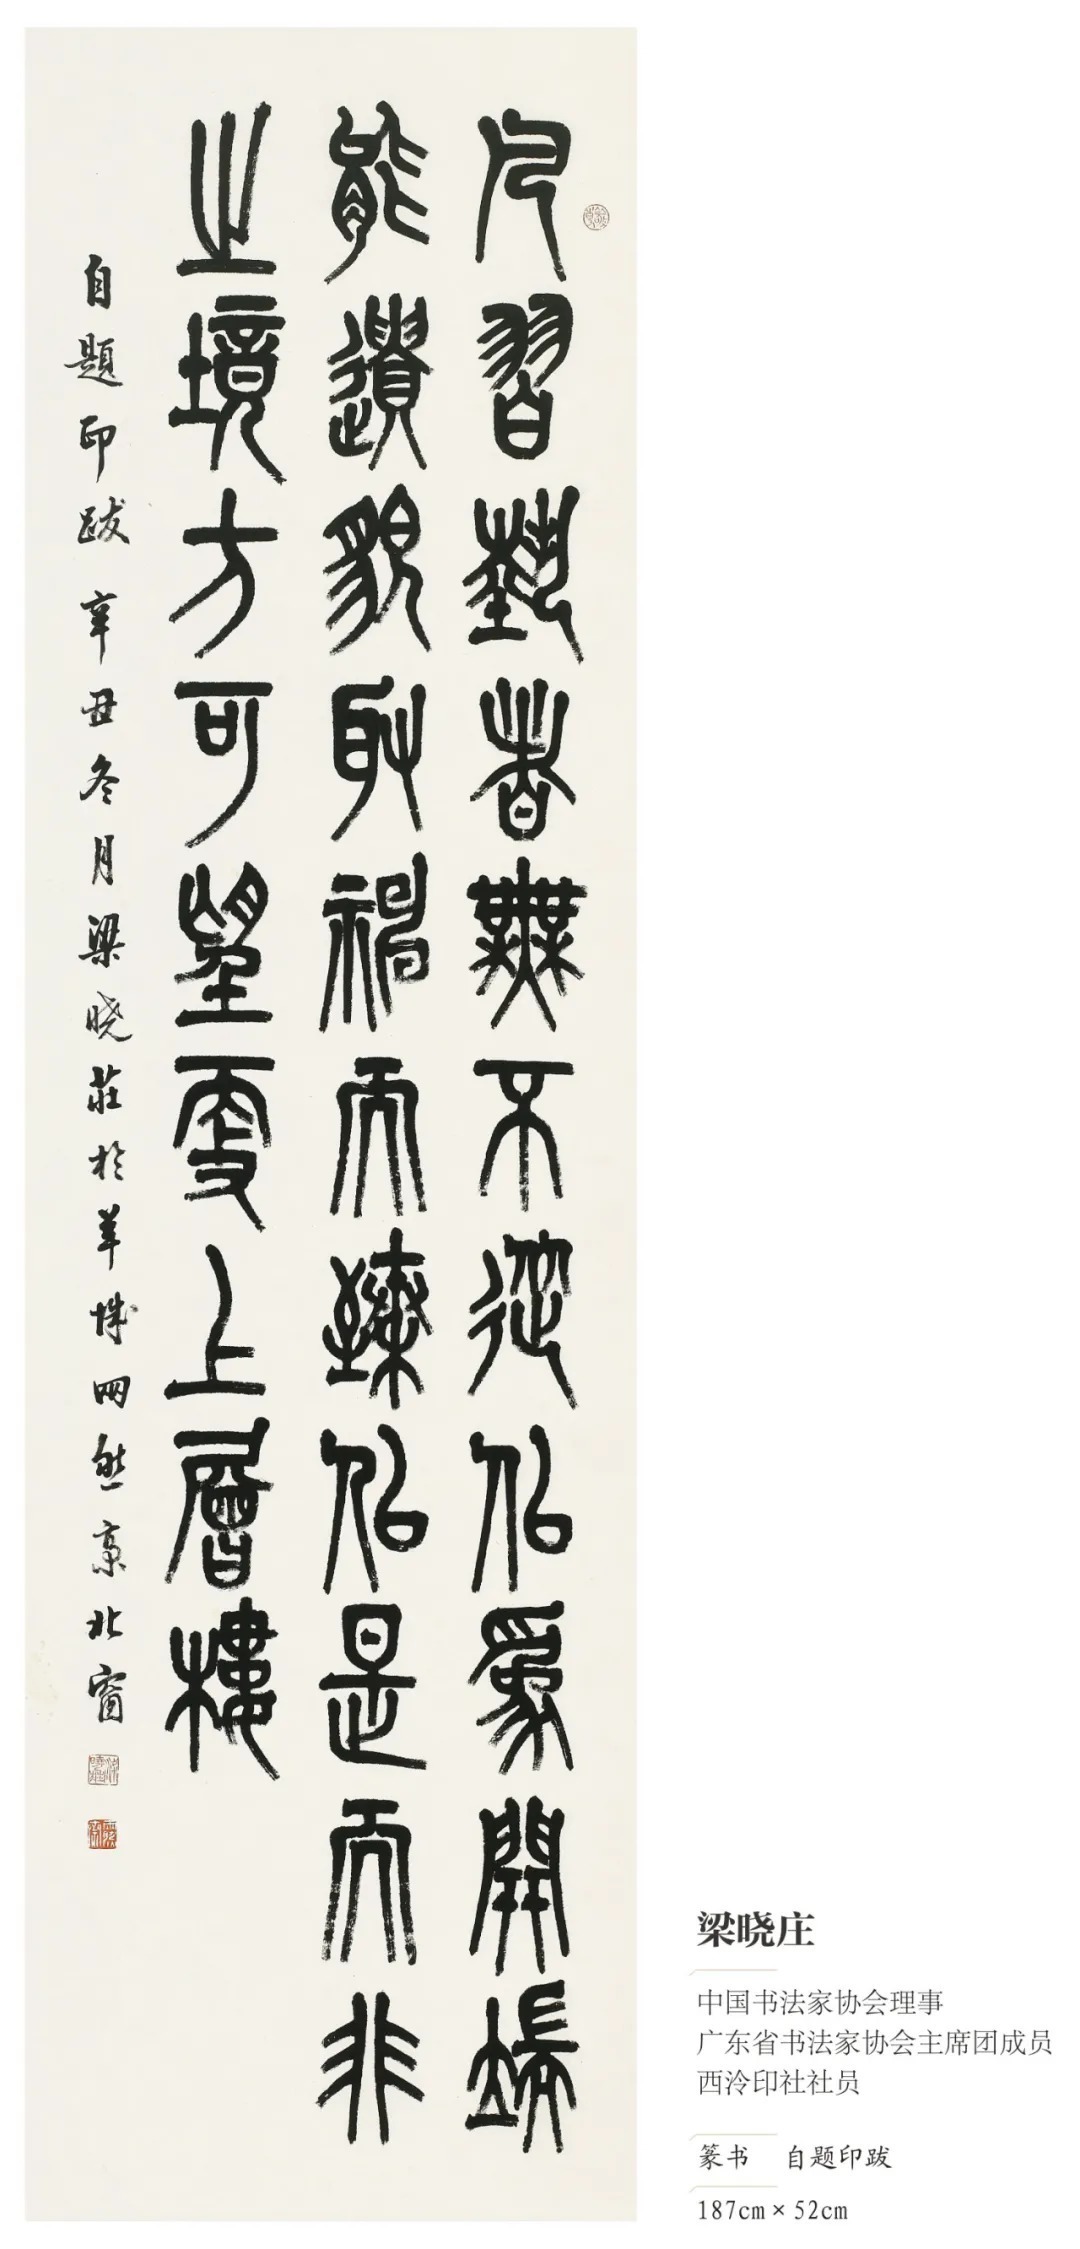 凡習藝者無不從佀爲開端
能遺貌取神而臻佀是而非
之境方可望更上層樓
自題印跋 辛丑冬月梁晓莊於羊城 北窗
梁晓庄
中国书法家协会理事
广东省书法家协会主席团成员
西泠印社社员
篆书 自题印跋
187cm × 52cm